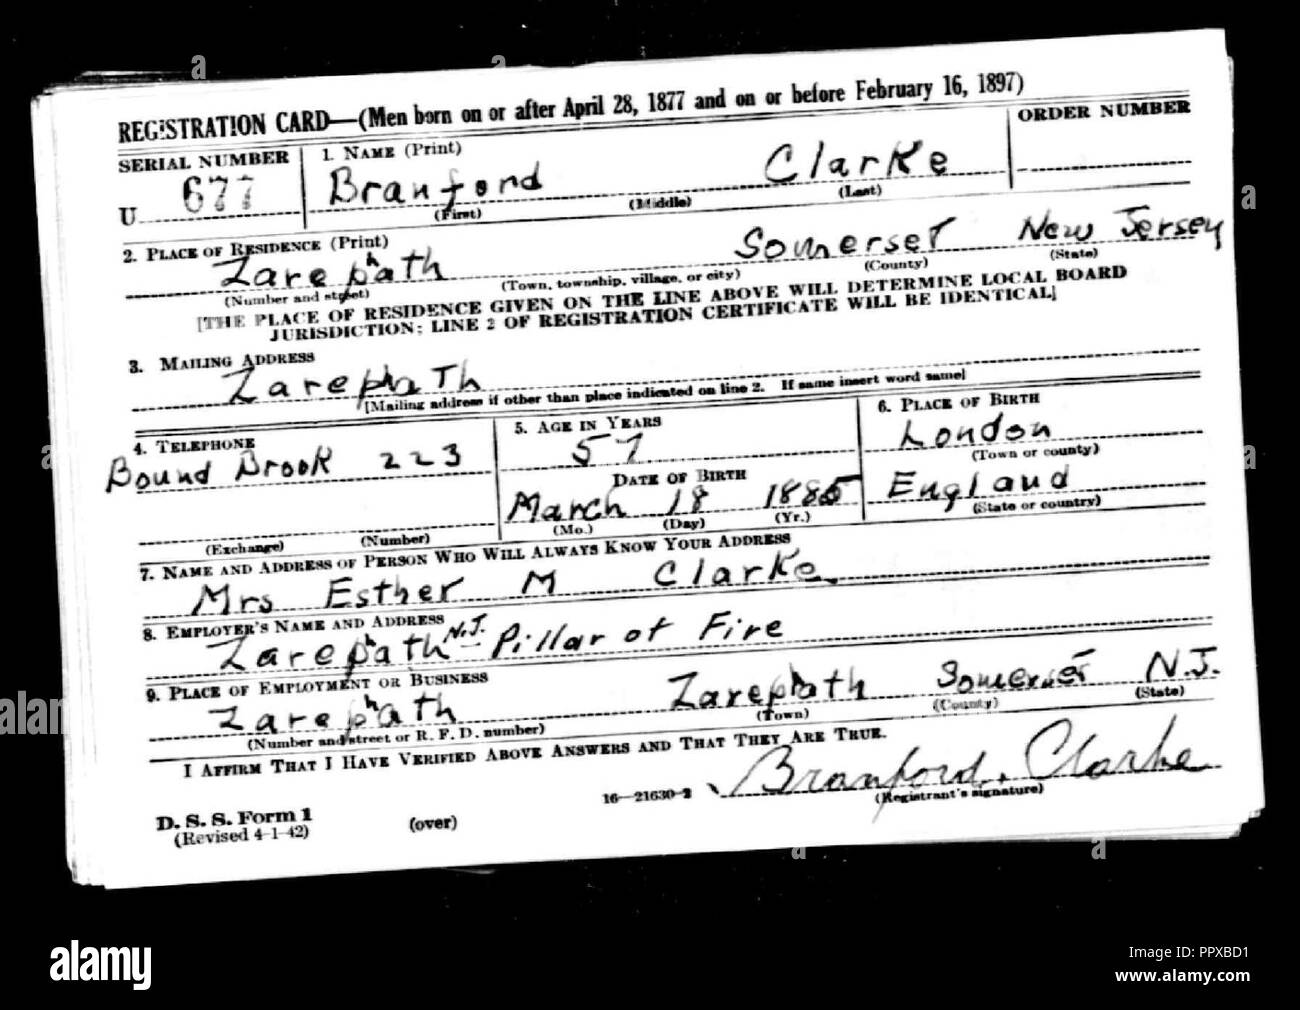 REGISTRATION CARD—(Men born on or after April 28, 1877 and on or before February 16, 1897)
SERIAL NUMBER
1. NAME (Print)
ORDER NUMBER
U 677
Branford Clarke
(First) (Middle) (Last)
2. PLACE OF RESIDENCE (Print)
Zarephath Somerset New Jersey
(Number and street) (Town, township, village, or city) (County) (State)
[THE PLACE OF RESIDENCE GIVEN ON THE LINE ABOVE WILL DETERMINE LOCAL BOARD
JURISDICTION; LINE 2 OF REGISTRATION CERTIFICATE WILL BE IDENTICAL]
3. MAILING ADDRESS
Zarephath
[Mailing address if other than place indicated on line 2. If same insert word same]
4. TELEPHONE
5. AGE IN YEARS
6. PLACE OF BIRTH
Bound Brook 223
57
London
(Town or county)
DATE OF BIRTH
March 18 1885
England
(Mo.) (Day) (Yr.)
(State or country)
(Exchange) (Number)
7. NAME AND ADDRESS OF PERSON WHO WILL ALWAYS KNOW YOUR ADDRESS
Mrs Esther M Clarke
8. EMPLOYER'S NAME AND ADDRESS
Zarephath N.J. Pillar of Fire
9. PLACE OF EMPLOYMENT OR BUSINESS
Zarephath Zarephath Somerset N.J.
(Number and street or R. F. D. number) (Town) (County) (State)
I AFFIRM THAT I HAVE VERIFIED ABOVE ANSWERS AND THAT THEY ARE TRUE.
Branford Clarke
D. S. S. Form 1
(Revised 4-1-42)
(over)
16—21630-2
(Registrant's signature)
a
alamy
Image ID: PPXBD1
www.alamy.com